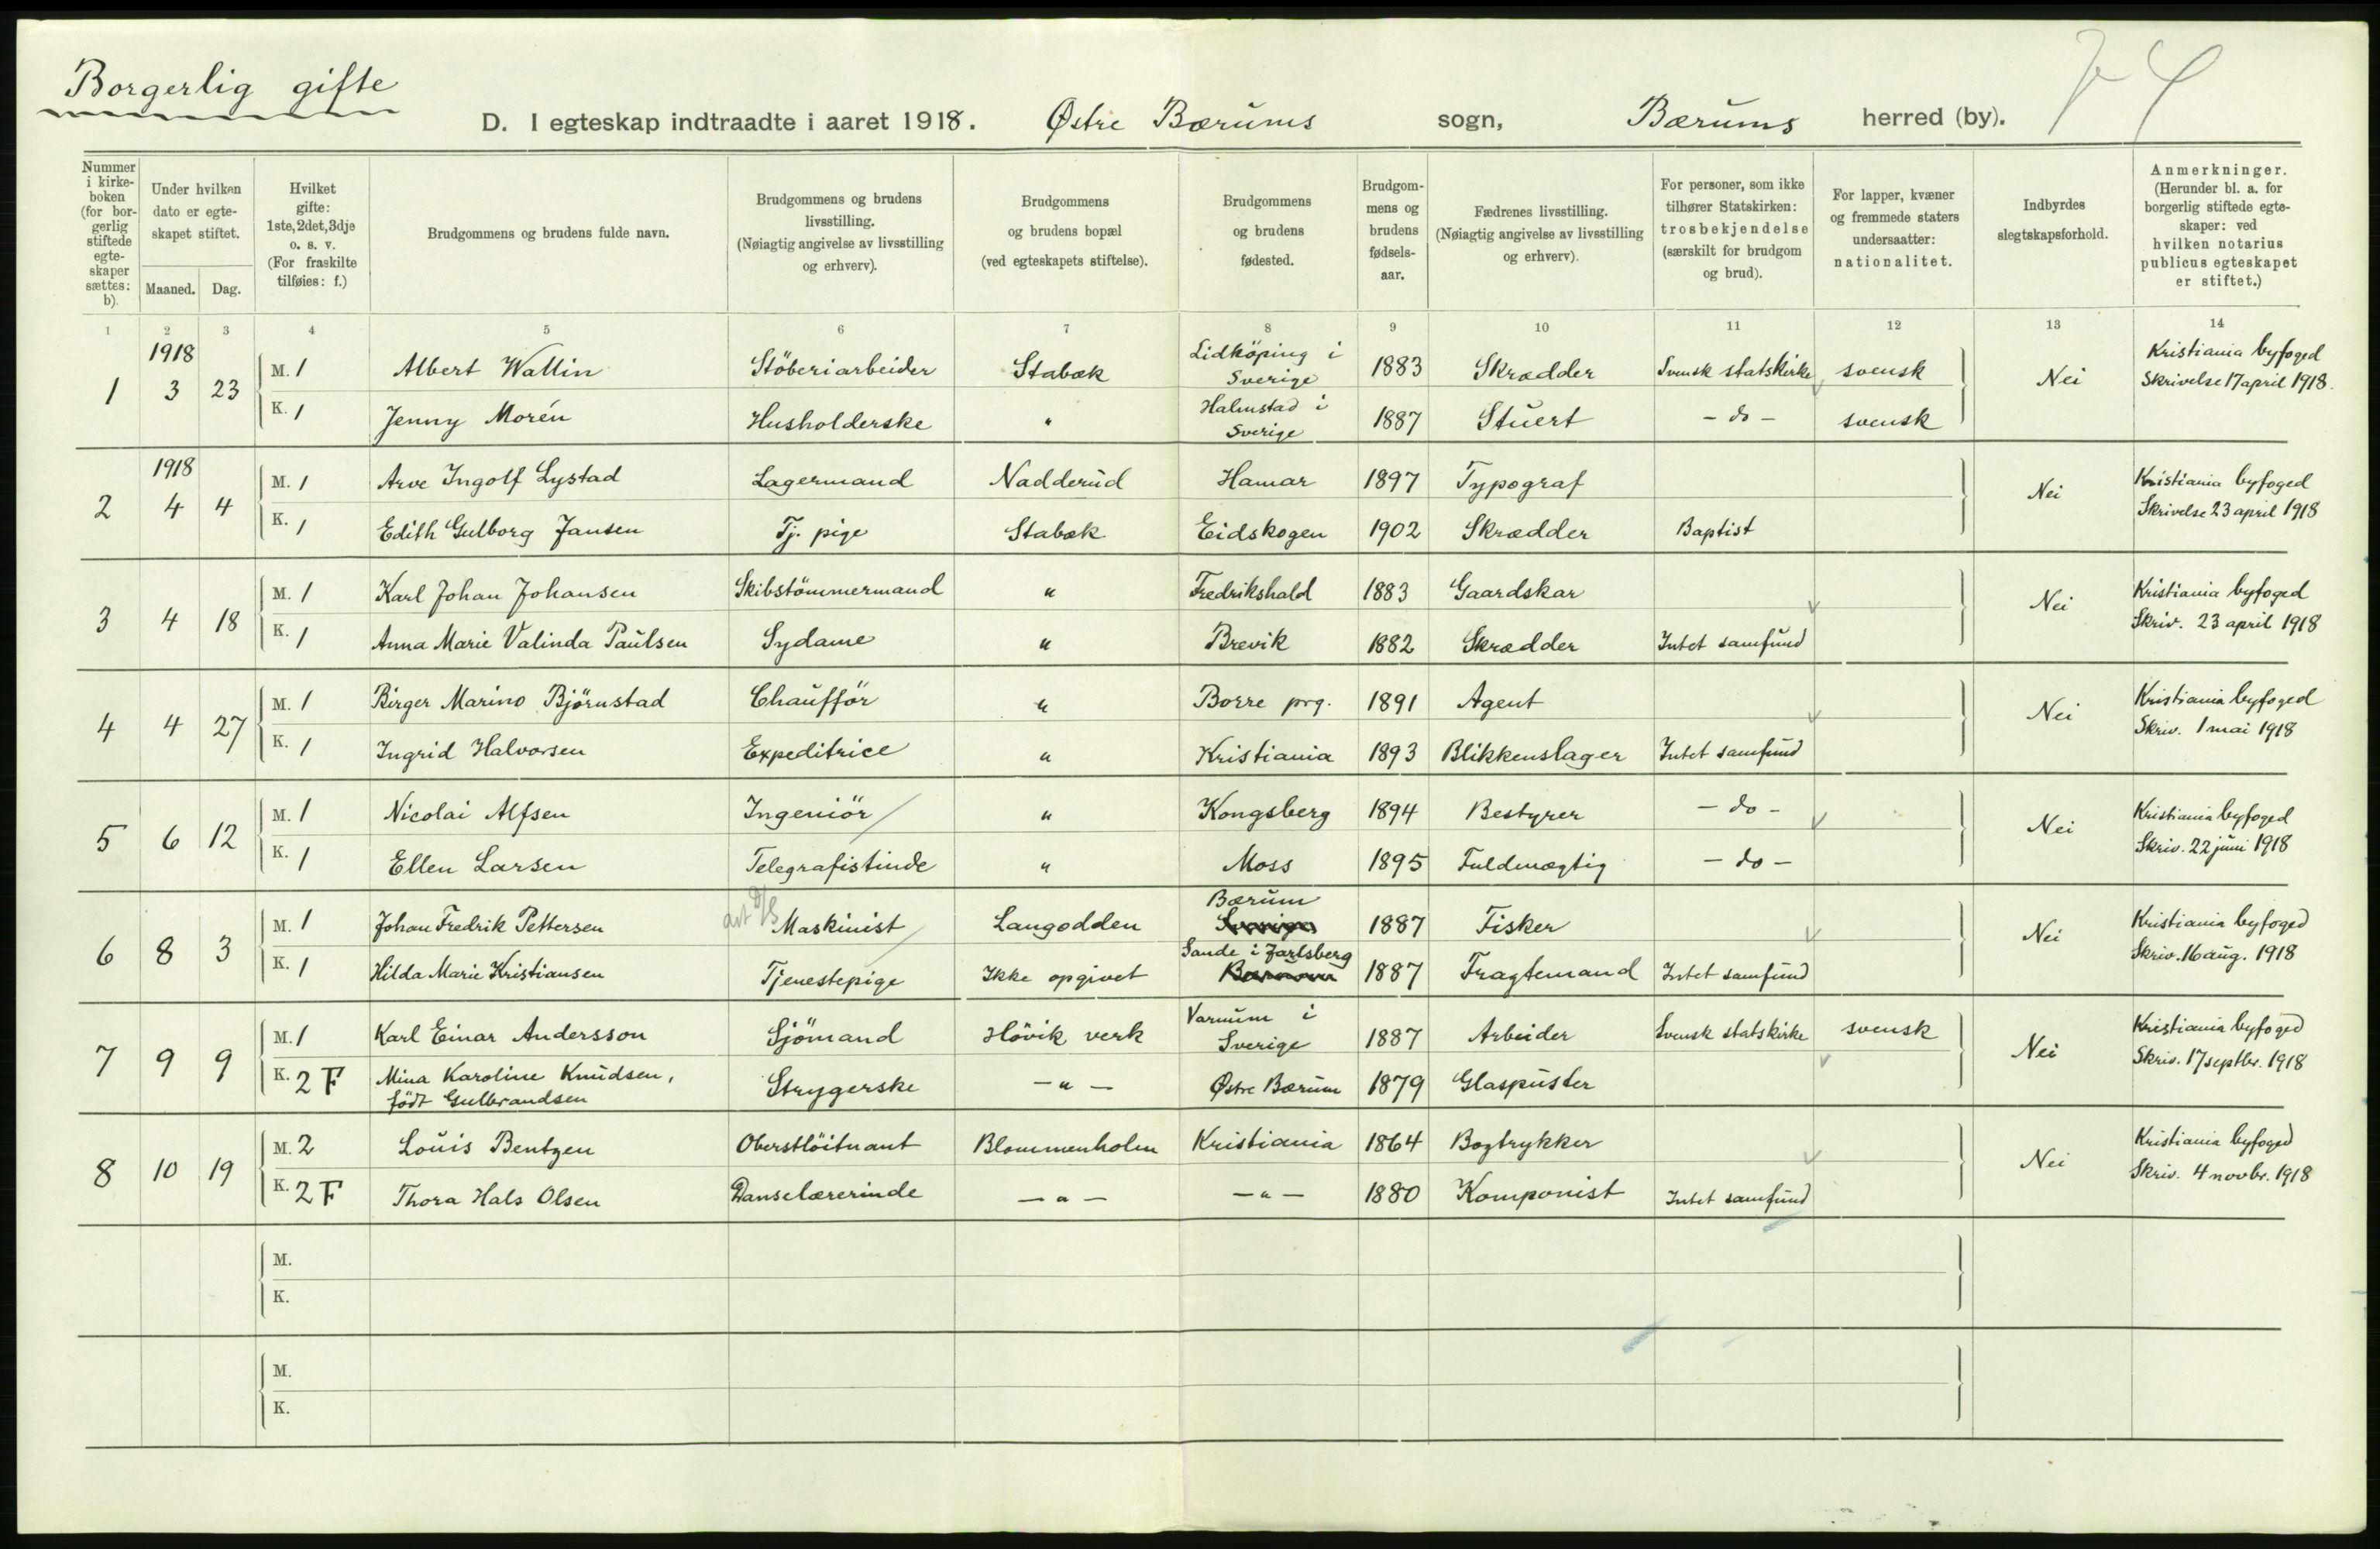 Borgerlig gifte
D. I egteskap indtraadte i aaret 1918. Østre Bærums sogn, Bærums herred (by).
Nummer i kirkeboken (for borgerlig stiftede egteskaper sættes: b).
Under hvilken dato er egteskapet stiftet.
Maaned. Dag.
Hvilket gifte: 1ste, 2det, 3dje o. s. v. (For fraskilte tilføies: f.)
Brudgommens og brudens fulde navn.
Brudgommens og brudens livsstilling. (Nøiagtig angivelse av livsstilling og erhverv).
Brudgommens og brudens bopæl (ved egteskapets stiftelse).
Brudgommens og brudens fødested.
Brudgommens og brudens fødselsaar.
Fædrenes livsstilling. (Nøiagtig angivelse av livsstilling og erhverv).
For personer, som ikke tilhører Statskirken: trosbekjendelse (særskilt for brudgom og brud).
For lapper, kvæner og fremmede staters undersaatter: nationalitet.
Indbyrdes slegtskapsforhold.
Anmerkninger. (Herunder bl. a. for borgerlig stiftede egteskaper: ved hvilken notarius publicus egteskapet er stiftet.)
1 2 3 4 5 6 7 8 9 10 11 12 13 14
1 1918 3 23 M. 1 Albert Wallin Stöberiarbeider Stabæk Lidköping i Sverige 1883 Skrædder Svensk statskirke svensk Nei Kristiania byfoged Skrivelse 17 april 1918.
K. 1 Jenny Morén Husholderske " Halmstad i Sverige 1887 Stuert - do - svensk
2 1918 4 4 M. 1 Arve Ingolf Lystad Lagermand Nadderud Hamar 1897 Typograf Nei Kristiania byfoged Skrivelse 23 april 1918
K. 1 Edith Gulborg Jansen Tj. pige Stabæk Eidskogen 1902 Skrædder Baptist
3 4 18 M. 1 Karl Johan Johansen Skibstömmermand " Fredrikshald 1883 Gaardskar Nei Kristiania byfoged Skriv. 23 april 1918
K. 1 Anna Marie Valinda Paulsen Sydame " Brevik 1882 Skrædder Intet samfund
4 4 27 M. 1 Birger Marino Bjørnstad Chaufför " Borre prg. 1891 Agent Nei Kristiania byfoged Skriv. 1 mai 1918
K. 1 Ingrid Halvorsen Expeditrice " Kristiania 1893 Blikkenslager Intet samfund
5 6 12 M. 1 Nicolai Alfsen Ingeniör " Kongsberg 1894 Bestyrer - do - Nei Kristiania byfoged Skriv. 22 juni 1918
K. 1 Ellen Larsen Telegrafistinde " Moss 1895 Fuldmægtig - do -
6 8 3 M. 1 Johan Fredrik Pettersen Maskinist Langodden Bærum 1887 Fisker Nei Kristiania byfoged Skriv. 16 aug. 1918
K. 1 Hilda Marie Kristiansen Tjenestepige Ikke opgivet Sande i Jarlsberg 1887 Fragtemand Intet samfund
7 9 9 M. 1 Karl Einar Andersson Sjömand Hövik verk Varnum i Sverige 1887 Arbeider Svensk statskirke svensk Nei Kristiania byfoged Skriv. 17 septbr. 1918
K. 2 F Mina Karoline Knudsen, født Gulbrandsen Strygerske - " - Østre Bærum 1879 Glaspuster
8 10 19 M. 2 Louis Bentzen Oberstlöitnant Blommenholm Kristiania 1864 Bogtrykker Nei Kristiania byfoged Skriv. 4 novbr. 1918
K. 2 F Thora Hals Olsen Danselærerinde - " - - " - 1880 Komponist Intet samfund
M.
K.
M.
K.